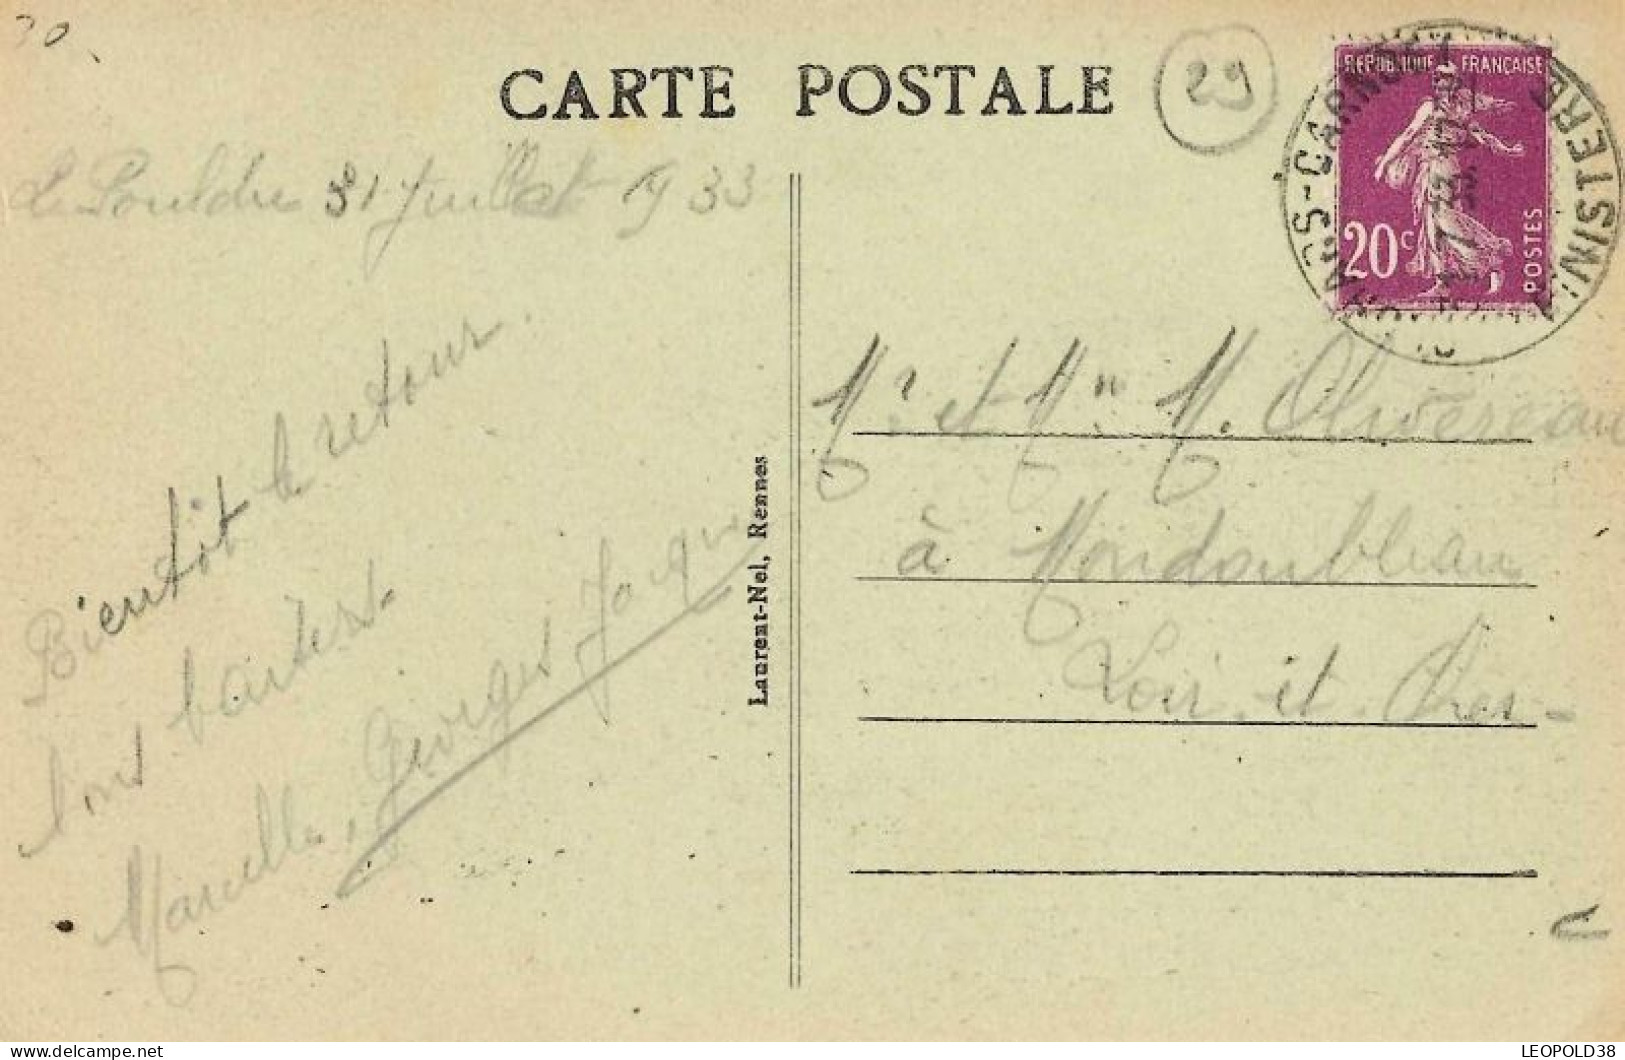 CARTE POSTALE
29
RÉPUBLIQUE FRANÇAISE
20c
POSTES
FINISTERE
Le Pouldu 31 Juillet 1933
Bientôt le retour.
bons baisers.
Marcelle, Georges Jacques
Laurent-Nel, Rennes
Mr et Mme M. Olivereau
à Mondoubleau
Loir et Cher
LEOPOLD38